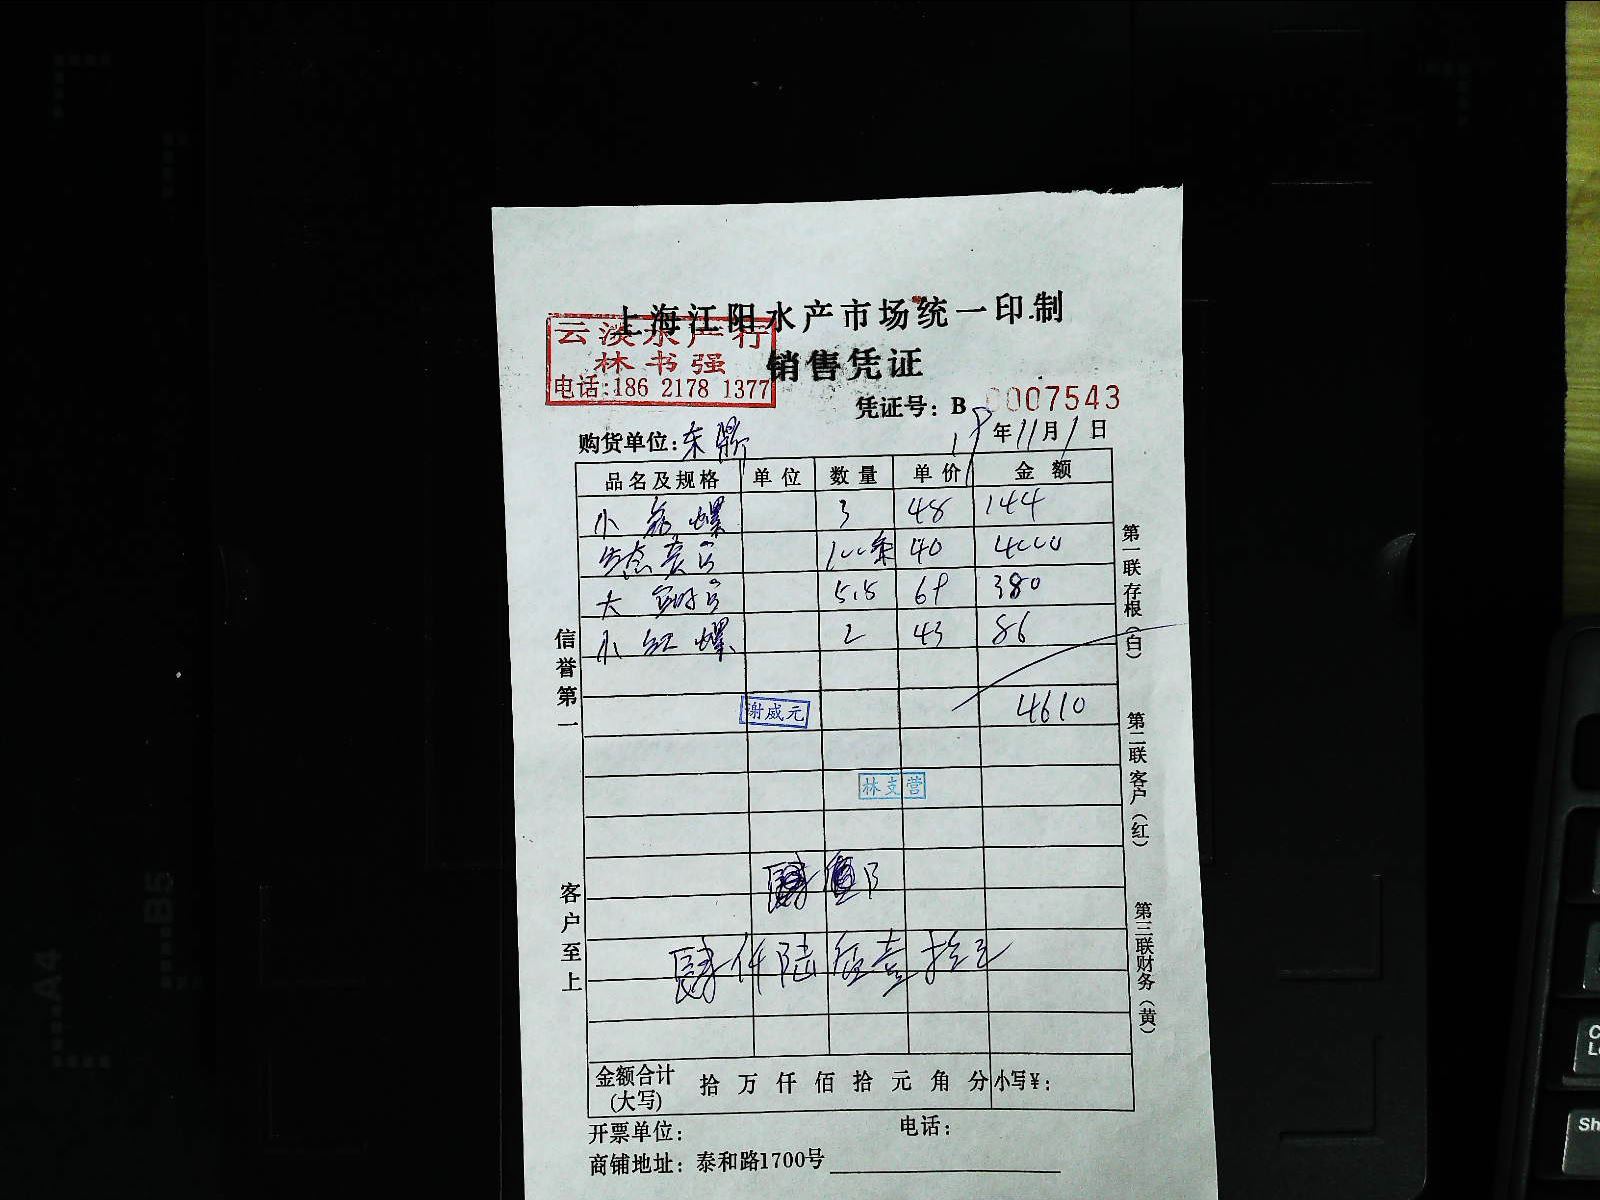 上海江阳水产市场统一印制
云淡水产行
林书强
电话:186 2178 1377
销售凭证
凭证号: B 0007543
购货单位: 东
年11月1日
品名及规格 单位 数量 单价 金额
小 螺 3 48 144
生态 100条 40 4000
大 5.5 69 380
小红螺 2 43 86
4610
谢威元
林支营
肆仟陆佰壹拾元
金额合计(大写) 拾 万 仟 佰 拾 元 角 分 小写¥:
开票单位: 电话:
商铺地址: 泰和路1700号
信誉第一
客户至上
第一联 存根(白)
第二联 客户(红)
第三联 财务(黄)
A4
B5